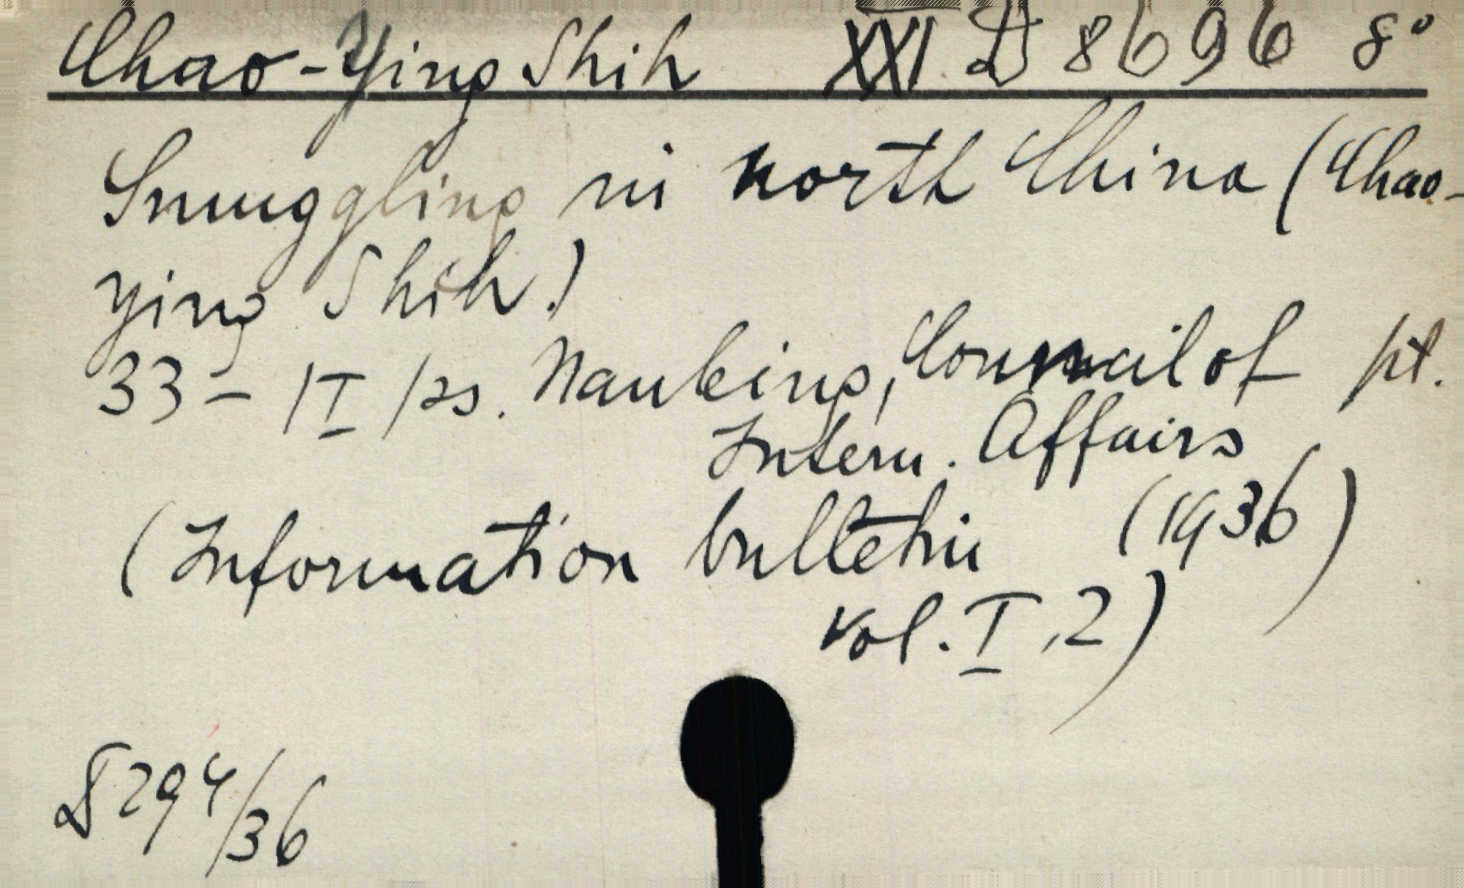 Chao-Ying Shih XXI D 8696 8°
Smuggling in north China (Chao-
ying Shih.)
33 - |I ps. Nanking, Council of pt.
Intern. Affairs
(Information bulletin (1936)
vol. I, 2)
D 294/36